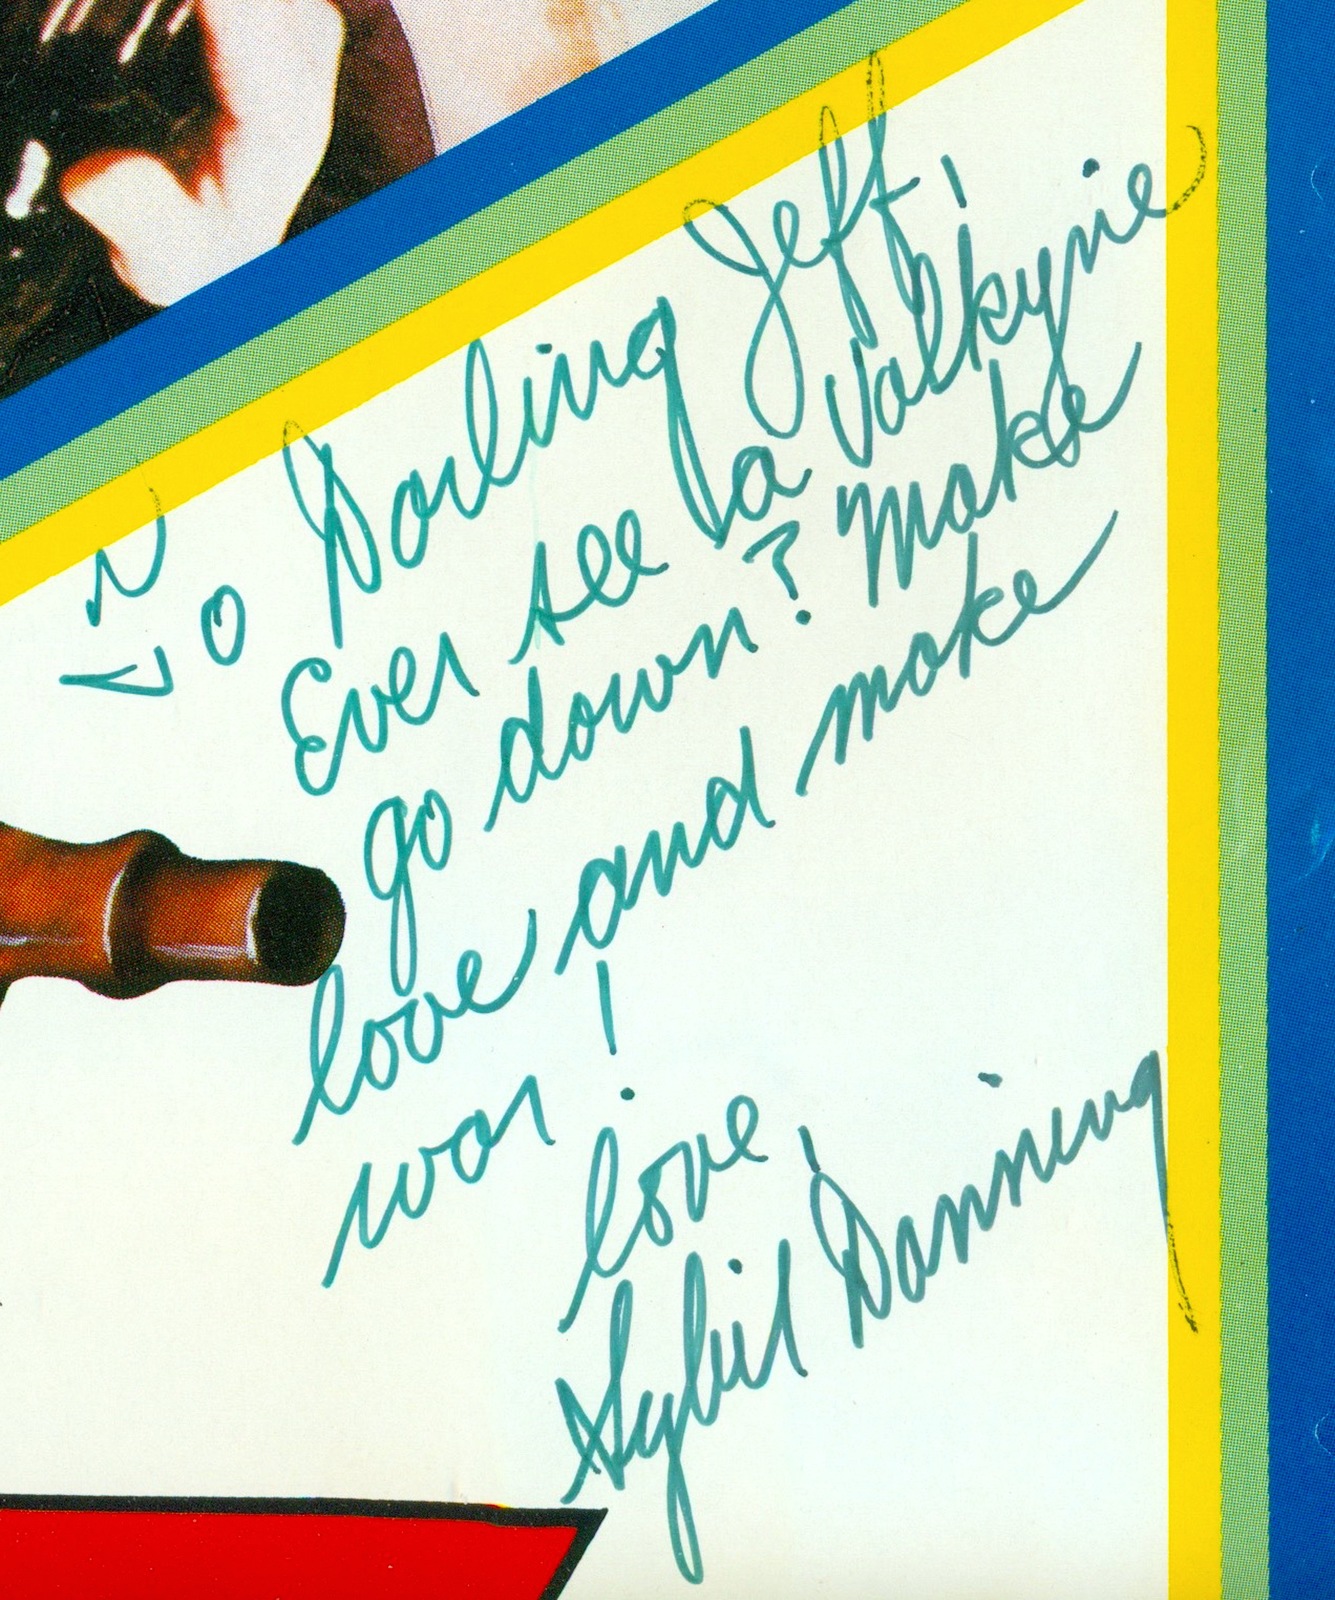 To Darling Jeff,
Ever see a Valkyrie
go down? Make
love and make
war!
love,
Sybil Danning